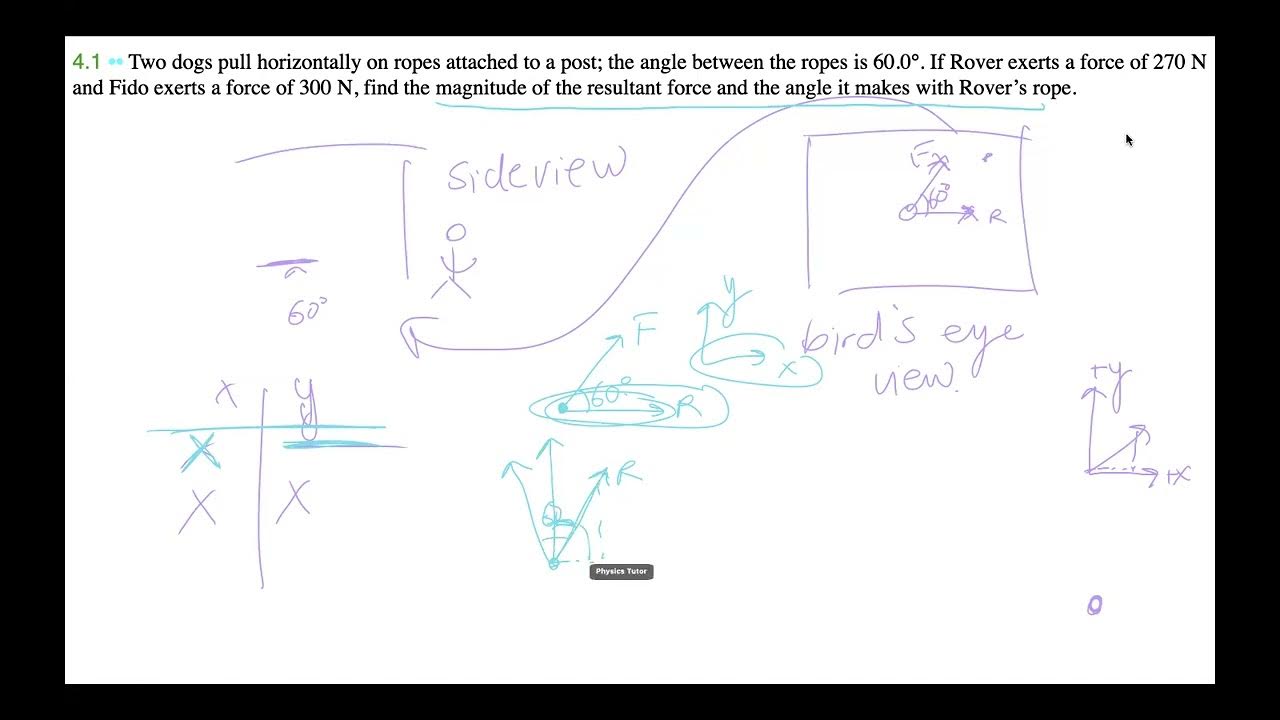 4.1 •• Two dogs pull horizontally on ropes attached to a post; the angle between the ropes is 60.0°. If Rover exerts a force of 270 N
and Fido exerts a force of 300 N, find the magnitude of the resultant force and the angle it makes with Rover's rope.
sideview
F
60°
R
60°
bird's eye
view.
F
y
x
60°
R
x y
x
x x
R
+y
+x
Physics Tutor